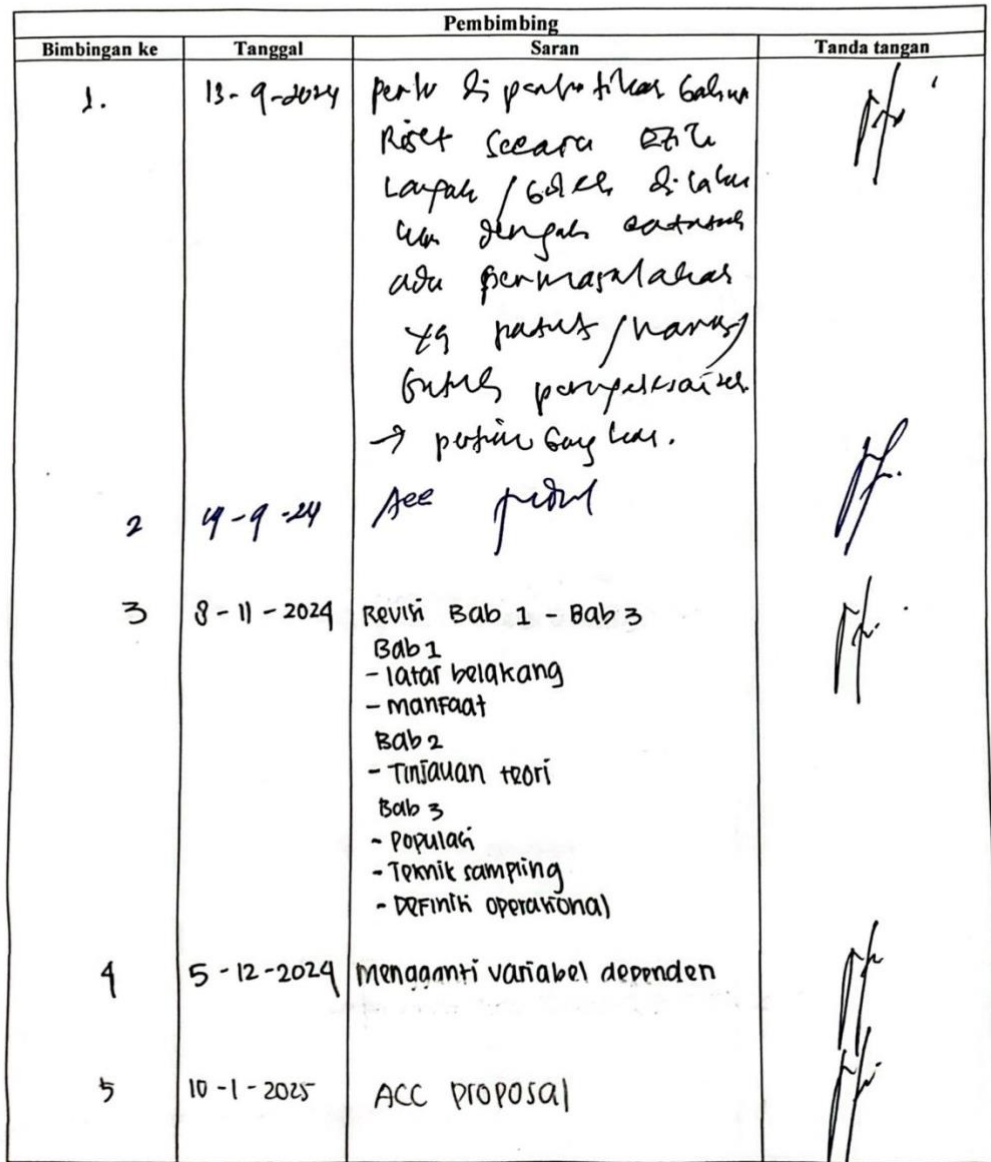 Pembimbing
Bimbingan ke Tanggal Saran Tanda tangan
1. 13-9-2024 perlu diperhatikan bahwa
Riset secara Etik
Layak / boleh dilaku
kan dengan
ada permasalahan
yg patut / harus
butuh penyelesaian
→ pertimbangkan.
2 19-9-24 Acc judul
3 8-11-2024 Revisi Bab 1 - Bab 3
Bab 1
- latar belakang
- manfaat
Bab 2
- Tinjauan teori
Bab 3
- Populasi
- Teknik sampling
- Definisi operasional
4 5-12-2024 Mengganti variabel dependen
5 10-1-2025 ACC proposal